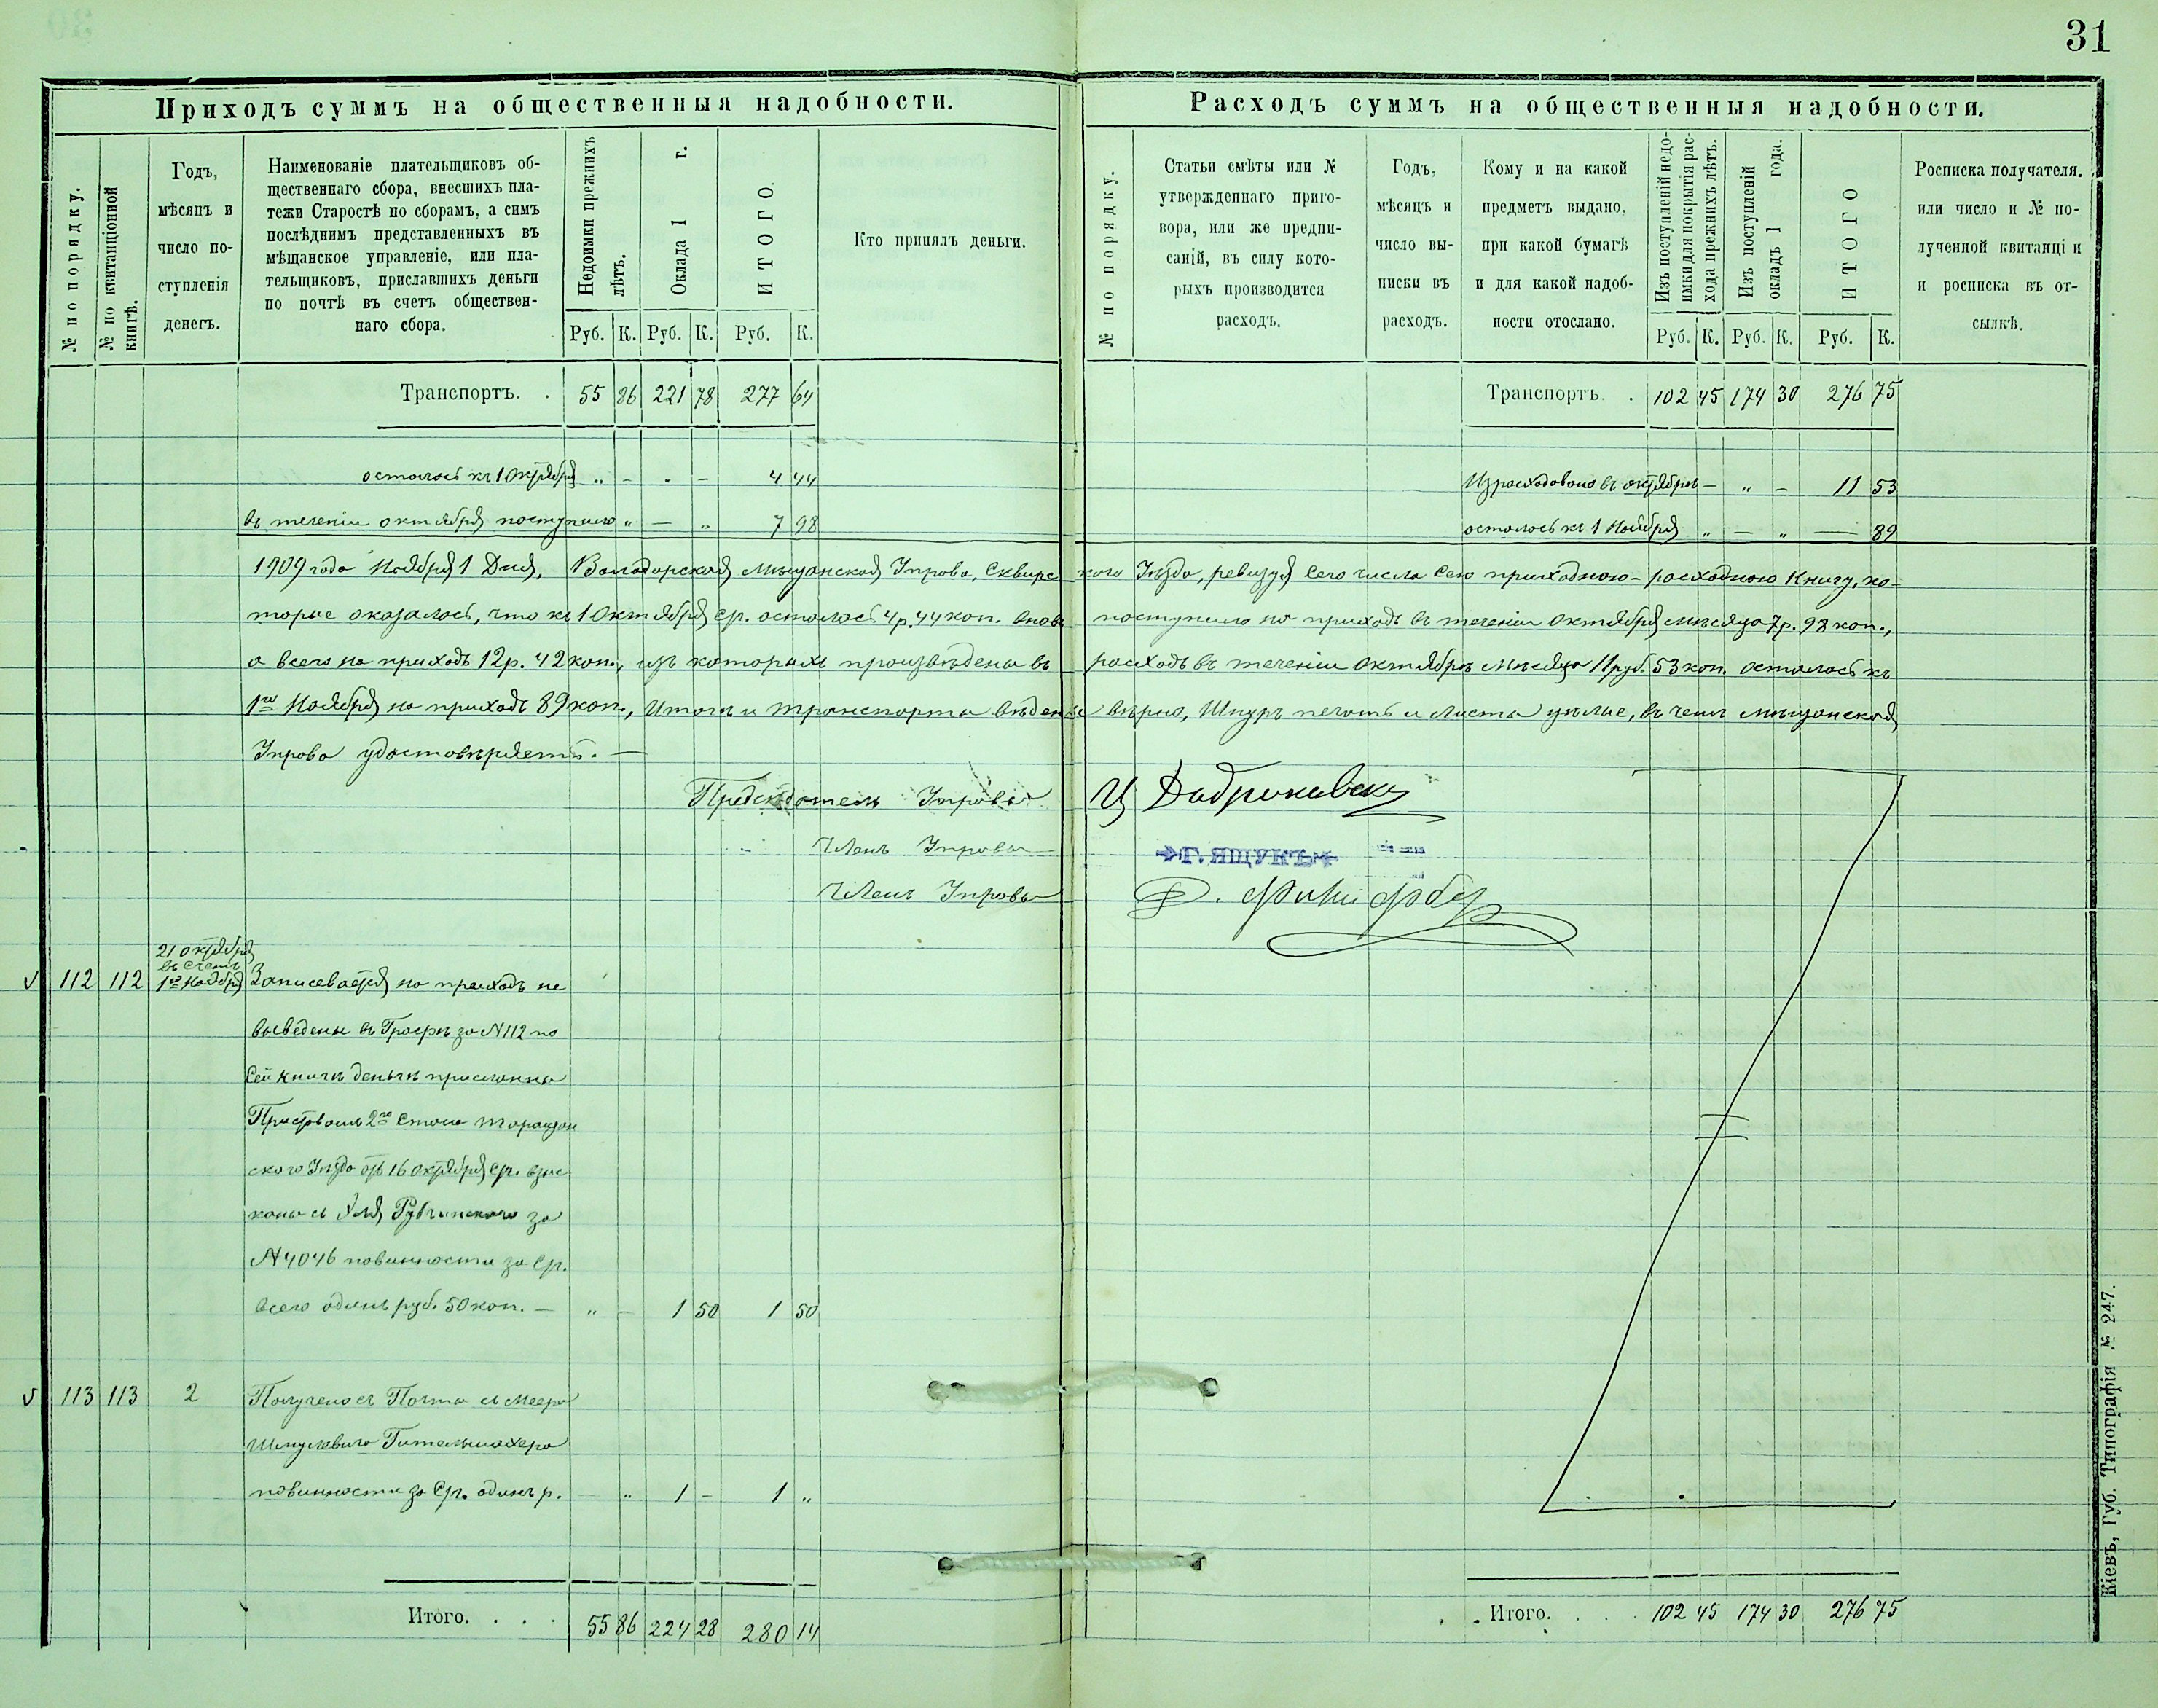 31
Приходъ суммъ на общественныя надобности.
№ по порядку.
№ по квитанціонной книгѣ.
Годъ,
мѣсяцъ и
число по-
ступленія
денегъ.
Наименованіе плательщиковъ об-
щественнаго сбора, внесшихъ пла-
тежи Старостѣ по сборамъ, а симъ
послѣднимъ представленныхъ въ
мѣщанское управленіе, или пла-
тельщиковъ, приславшихъ деньги
по почтѣ въ счетъ обществен-
наго сбора.
Недоимки прежнихъ лѣтъ.
Оклада 1 г.
ИТОГО.
Руб. К. Руб. К. Руб. К.
Кто принялъ деньги.
Транспортъ. . 55 86 221 78 277 64
осталось къ 1 Октября „ - „ - 4 44
въ теченіи октября поступило „ — „ 7 98
Расходъ суммъ на общественныя надобности.
№ по порядку.
Статьи смѣты или №
утвержденнаго приго-
вора, или же предпи-
саній, въ силу кото-
рыхъ производится
расходъ.
Годъ,
мѣсяцъ и
число вы-
писки въ
расходъ.
Кому и на какой
предметъ выдано,
при какой бумагѣ
и для какой надоб-
ности отослано.
Изъ поступленій недо-
имки для покрытія рас-
хода прежнихъ лѣтъ.
Изъ поступленій
окладъ 1 года.
ИТОГО
Руб. К. Руб. К. Руб. К.
Росписка получателя.
или число и № по-
лученной квитанці и
и росписка въ от-
сылкѣ.
Транспортъ. . 102 45 174 30 276 75
Израсходовано въ октябрѣ — „ — 11 53
осталось къ 1 Ноября „ — „ — 89
1909 года Ноября 1 Дня, Володарская Мѣщанская Управа, Сквирскаго Уѣзда, ревизуя сего числа сею приходно-расходною Книгу, ко-
торые оказалось, что къ 1 Октября с/г. осталось 4 р. 44 коп. вновь поступило на приходъ въ теченіи Октября мѣсяца 7 р. 98 коп.,
а всего на приходъ 12 р. 42 коп., изъ которыхъ произведены въ расходъ въ теченіи октябрѣ мѣсяца 11 руб. 53 коп. осталось къ
1го Ноября на приходъ 89 коп., Итоги и транспорта ведены вѣрно, Шнуръ печать и листы цѣлые, въ чемъ мѣщанская
Управа удостовѣряетъ. —
Предсѣдатель Управы
Членъ Управы
Г. ЯЩУКЪ
Членъ Управы
112 112 21 октября
въ счетъ
1го Ноября Записевается на приходъ не
выведены въ Графѣ за № 112 по
Сей книгѣ деньги присланны
Приставомъ 2го Стана Таращан
скаго Уѣзда отъ 16 октября с/г. взыс
№ 4046 повинности за с/г.
всего одинъ руб. 50 коп. — „ — 1 50 1 50
113 113 2 Получено съ Почта съ Меера
Шмулевича Гительмахера
повинности за с/г. одинъ р. „ 1 - 1 „
Итого. . . . 55 86 224 28 280 14
Итого. . . . 102 45 174 30 276 75
Кіевъ, Губ. Типографія № 247.